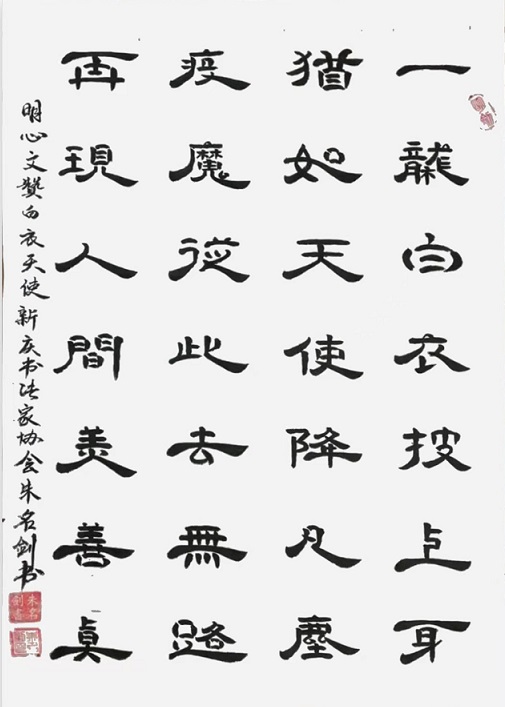 一龍白衣披上身
猶如天使降凡塵
疫魔從此去無路
再現人間美善真
明心文赞白衣天使新庆书法家协会朱名剑书